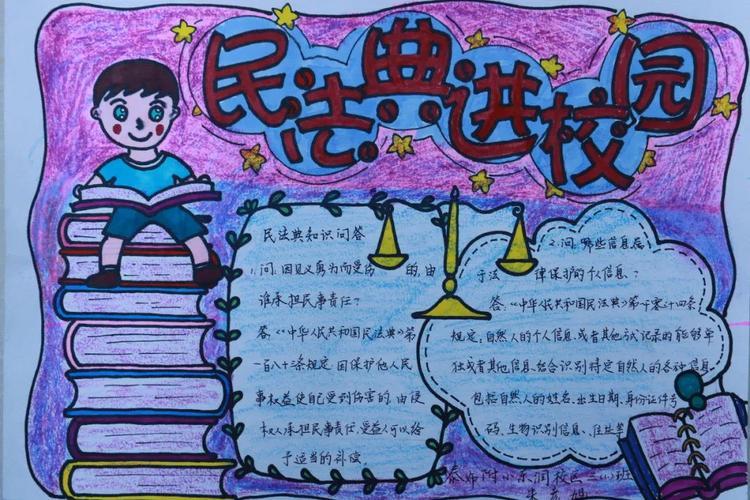 民法典进校园
民法典知识问答
1.问:因见义勇为而受伤的,由
谁承担民事责任?
答:《中华人民共和国民法典》第
一百八十三条规定 因保护他人民
事权益使自己受到伤害的,由侵
权人承担民事责任,受益人可以给
予适当的补偿
2.问:哪些信息属
于法律保护的个人信息?
答:《中华人民共和国民法典》第一千零三十四条
规定:自然人的个人信息 或者其他方式记录的能够单
独或者其他信息结合识别特定自然人的各种信息
包括自然人的姓名、出生日期、身份证件号
码、生物识别信息、住址等
附小东润校区三(1)班